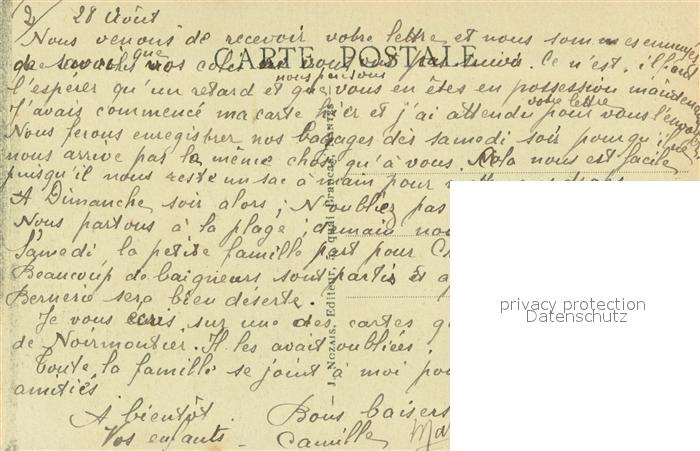 2/ 28 Août
Nous venons de recevoir votre lettre et nous sommes ennuyés
de savoir que vos colis ne vous ont pas suivis. Ce n'est, il faut
l'espérer qu'un retard et que nous pensons vous en êtes en possession maintenant
J'avais commencé ma carte hier et j'ai attendu votre lettre pour vous l'envoyer
Nous ferons enregistrer nos bagages dès samedi soir pour qu'il ne
nous arrive pas la même chose qu'à vous. Cela nous est facile
puisqu'il nous reste un sac à main pour
A Dimanche soir alors ; N'oubliez pas
Nous partons à la plage ; demain
Samedi la petite famille part pour
Beaucoup de baigneurs sont partis et
Bernerie sera bien déserte.
Je vous écris sur une des cartes
de Noirmoutier. Il les avait oubliées.
Toute la famille se joint à moi
amitiés
A bientôt. Bons baisers
Vos enfants - Camille
CARTE POSTALE
J. Nozais, Editeur, quai Brancas, Nantes
privacy protection
Datenschutz